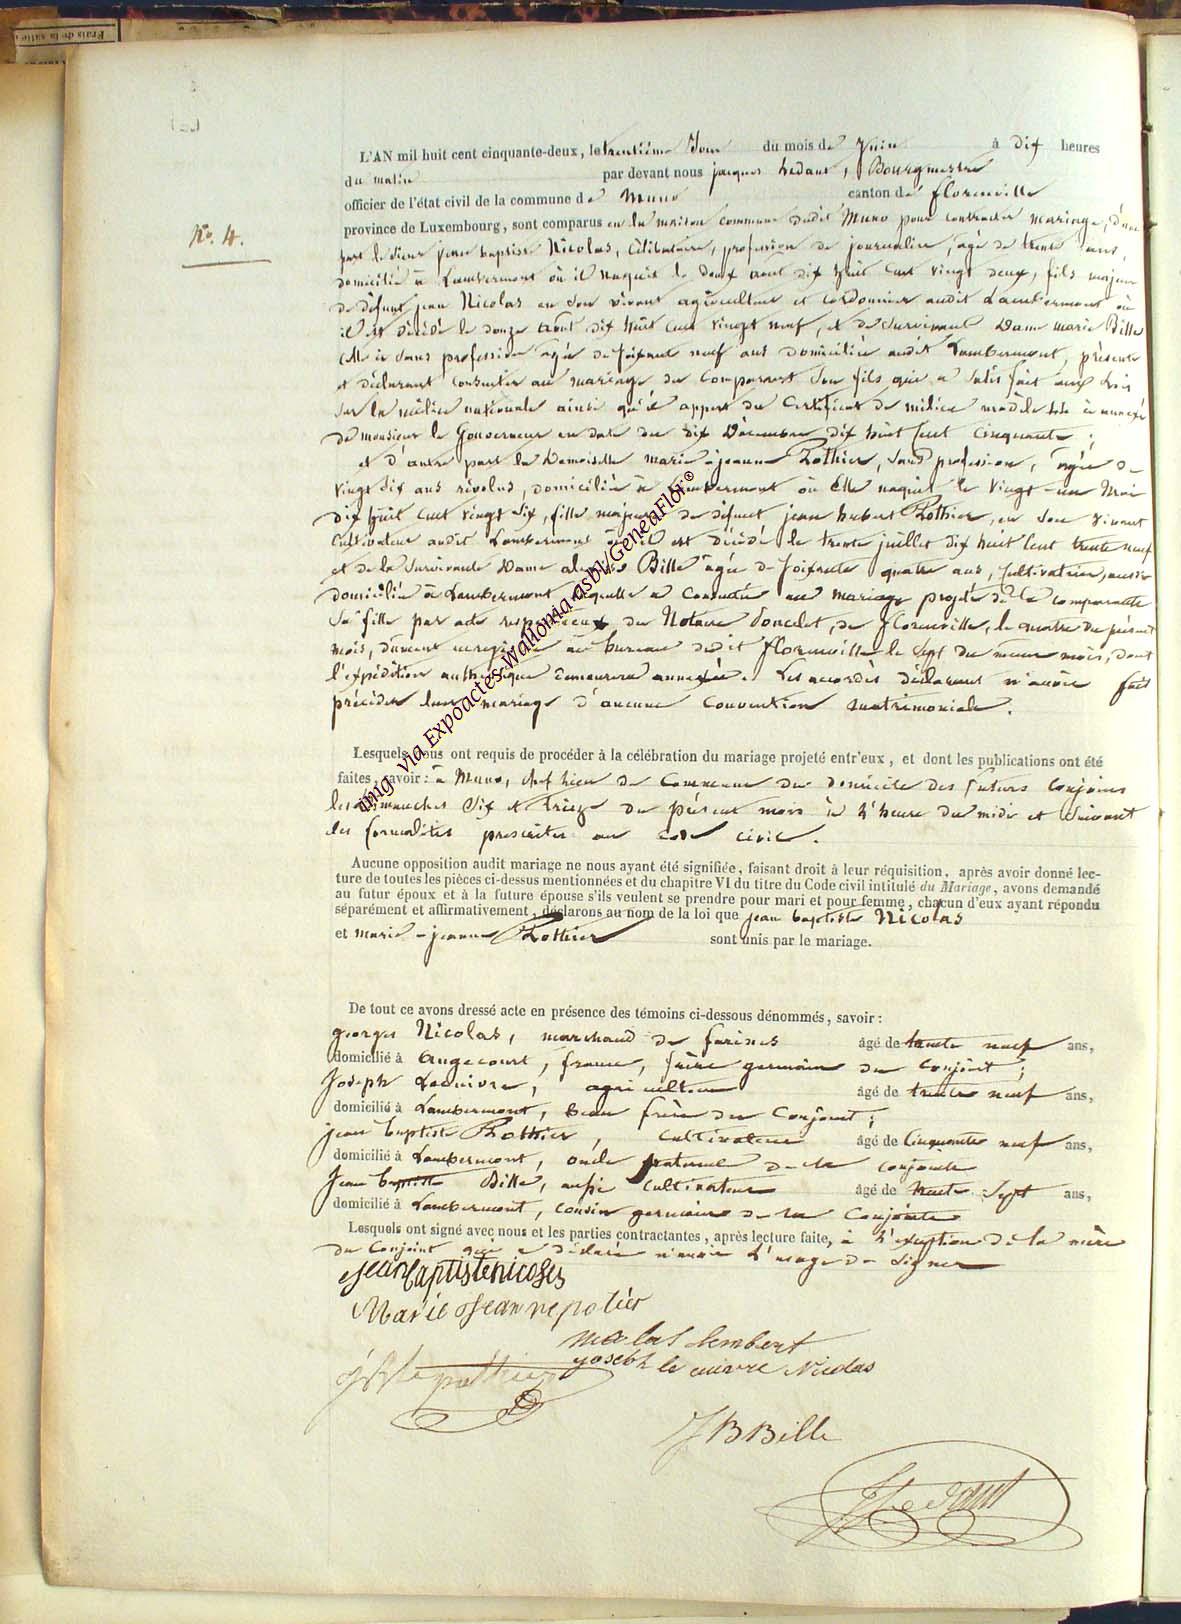 L'AN mil huit cent cinquante-deux, le trentième Jour du mois de Juin à dix heures
du matin par devant nous jacques hedant, Bourgmestre
officier de l'état civil de la commune de Muno canton de florenville
N.o 4.
province de Luxembourg, sont comparus en la maison commune dudit Muno pour contracter mariage, d'une
part le Sieur jean baptiste Nicolas, Célibataire, profession de journalier, agé de trente ans,
domicilié à Lambermont où il naquit le douze aout dix huit Cent vingt deux, fils majeur
de défunt jean Nicolas en Son vivant agriculteur et cordonnier audit Lambermont où
il est décédé le douze Août dix huit Cent vingt neuf, et de Survivante Dame marie Bille
Celle ci Sans profession agée de Soixante neuf ans domiciliée audit Lambermont, présente
et déclarant consentir au mariage du Comparant Son fils qui a Satisfait aux Lois
Sur la milice nationale ainsi qu'il appert du Certificat de milice modèle annexé
de monsieur le Gouverneur en date du dix Décembre dix huit Cent Cinquante ;
et d'autre part la Demoiselle marie-jeanne Pothier, Sans profession, agée de
vingt Six ans révolus, domiciliée à Lambermont où Elle naquit le vingt-un Mai
dix huit Cent vingt Six, fille majeure de défunt jean hubert Pothier, en Son vivant
Cultivateur audit Lambermont où il est décédé le trente juillet dix huit Cent trente neuf
et de la Survivante Dame Bille agée de Soixante quatre ans, Cultivatrice, aussi
domiciliée à Lambermont laquelle a Consentie au mariage projeté de la comparante
Sa fille par acte respectueux du Notaire Poncelet, de florenville, le quatre du présent
mois, dument enregistré au bureau dudit florenville le Sept du même mois, dont
l'expédition authentique demeurera annexée. Les accordés déclarent n'avoir fait
précéder leur mariage d'aucune Convention matrimoniale.
Lesquels nous ont requis de procéder à la célébration du mariage projeté entr'eux, et dont les publications ont été
faites, savoir : à Muno, chef lieu de Commune du domicile des futurs Conjoints
les dimanches Six et treize du présent mois à l'heure du midi et Suivant
les formalités prescrites au code civil.
Aucune opposition audit mariage ne nous ayant été signifiée, faisant droit à leur réquisition, après avoir donné lec-
ture de toutes les pièces ci-dessus mentionnées et du chapitre VI du titre du Code civil intitulé du Mariage, avons demandé
au futur époux et à la future épouse s'ils veulent se prendre pour mari et pour femme, chacun d'eux ayant répondu
séparément et affirmativement, déclarons au nom de la loi que jean baptiste Nicolas
et marie-jeanne Pothier sont unis par le mariage.
De tout ce avons dressé acte en présence des témoins ci-dessous dénommés, savoir :
georges Nicolas, marchand de farines âgé de trente neuf ans,
domicilié à Angecourt, france, frère germain du Conjoint ;
Joseph Lecuivre, agriculteur âgé de trente neuf ans,
domicilié à Lambermont, beau frère du Conjoint ;
jean baptiste Pothier, cultivateur âgé de Cinquante neuf ans,
domicilié à Lambermont, oncle paternel de la conjointe
Jean baptiste Bille, aussi cultivateur âgé de trente Sept ans,
domicilié à Lambermont, cousin germain de la Conjointe
Lesquels ont signé avec nous et les parties contractantes, après lecture faite, à l'exeption de la mère
du Conjoint qui a déclaré n'avoir l'usage de Signer
Jean baptiste nicolas
Marie Jeanne potier
lambert
joseph le cuivre Nicolas
pothier
J B Bille
J hedant
img via Expoactes-Wallonia-asbl/GeneaFlor©